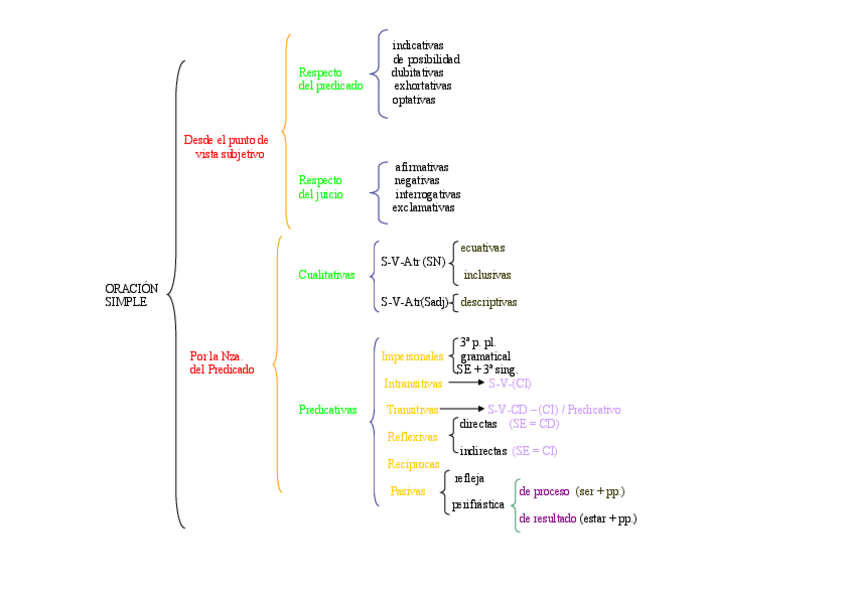 indicativas
de posibilidad
Respecto dubitativas
del predicado exhortativas
optativas
Desde el punto de
vista subjetivo
afirmativas
Respecto negativas
del juicio interrogativas
exclamativas
ecuativas
S-V-Atr (SN)
Cualitativas inclusivas
ORACIÓN
SIMPLE S-V-Atr(Sadj) descriptivas
3ª p. pl.
Por la Nza. Impersonales gramatical
del Predicado SE + 3ª sing.
Intransitivas S-V-(CI)
Predicativas Transitivas S-V-CD – (CI) / Predicativo
directas (SE = CD)
Reflexivas
indirectas (SE = CI)
Recíprocas
refleja
Pasivas de proceso (ser + pp.)
perifrástica
de resultado (estar + pp.)